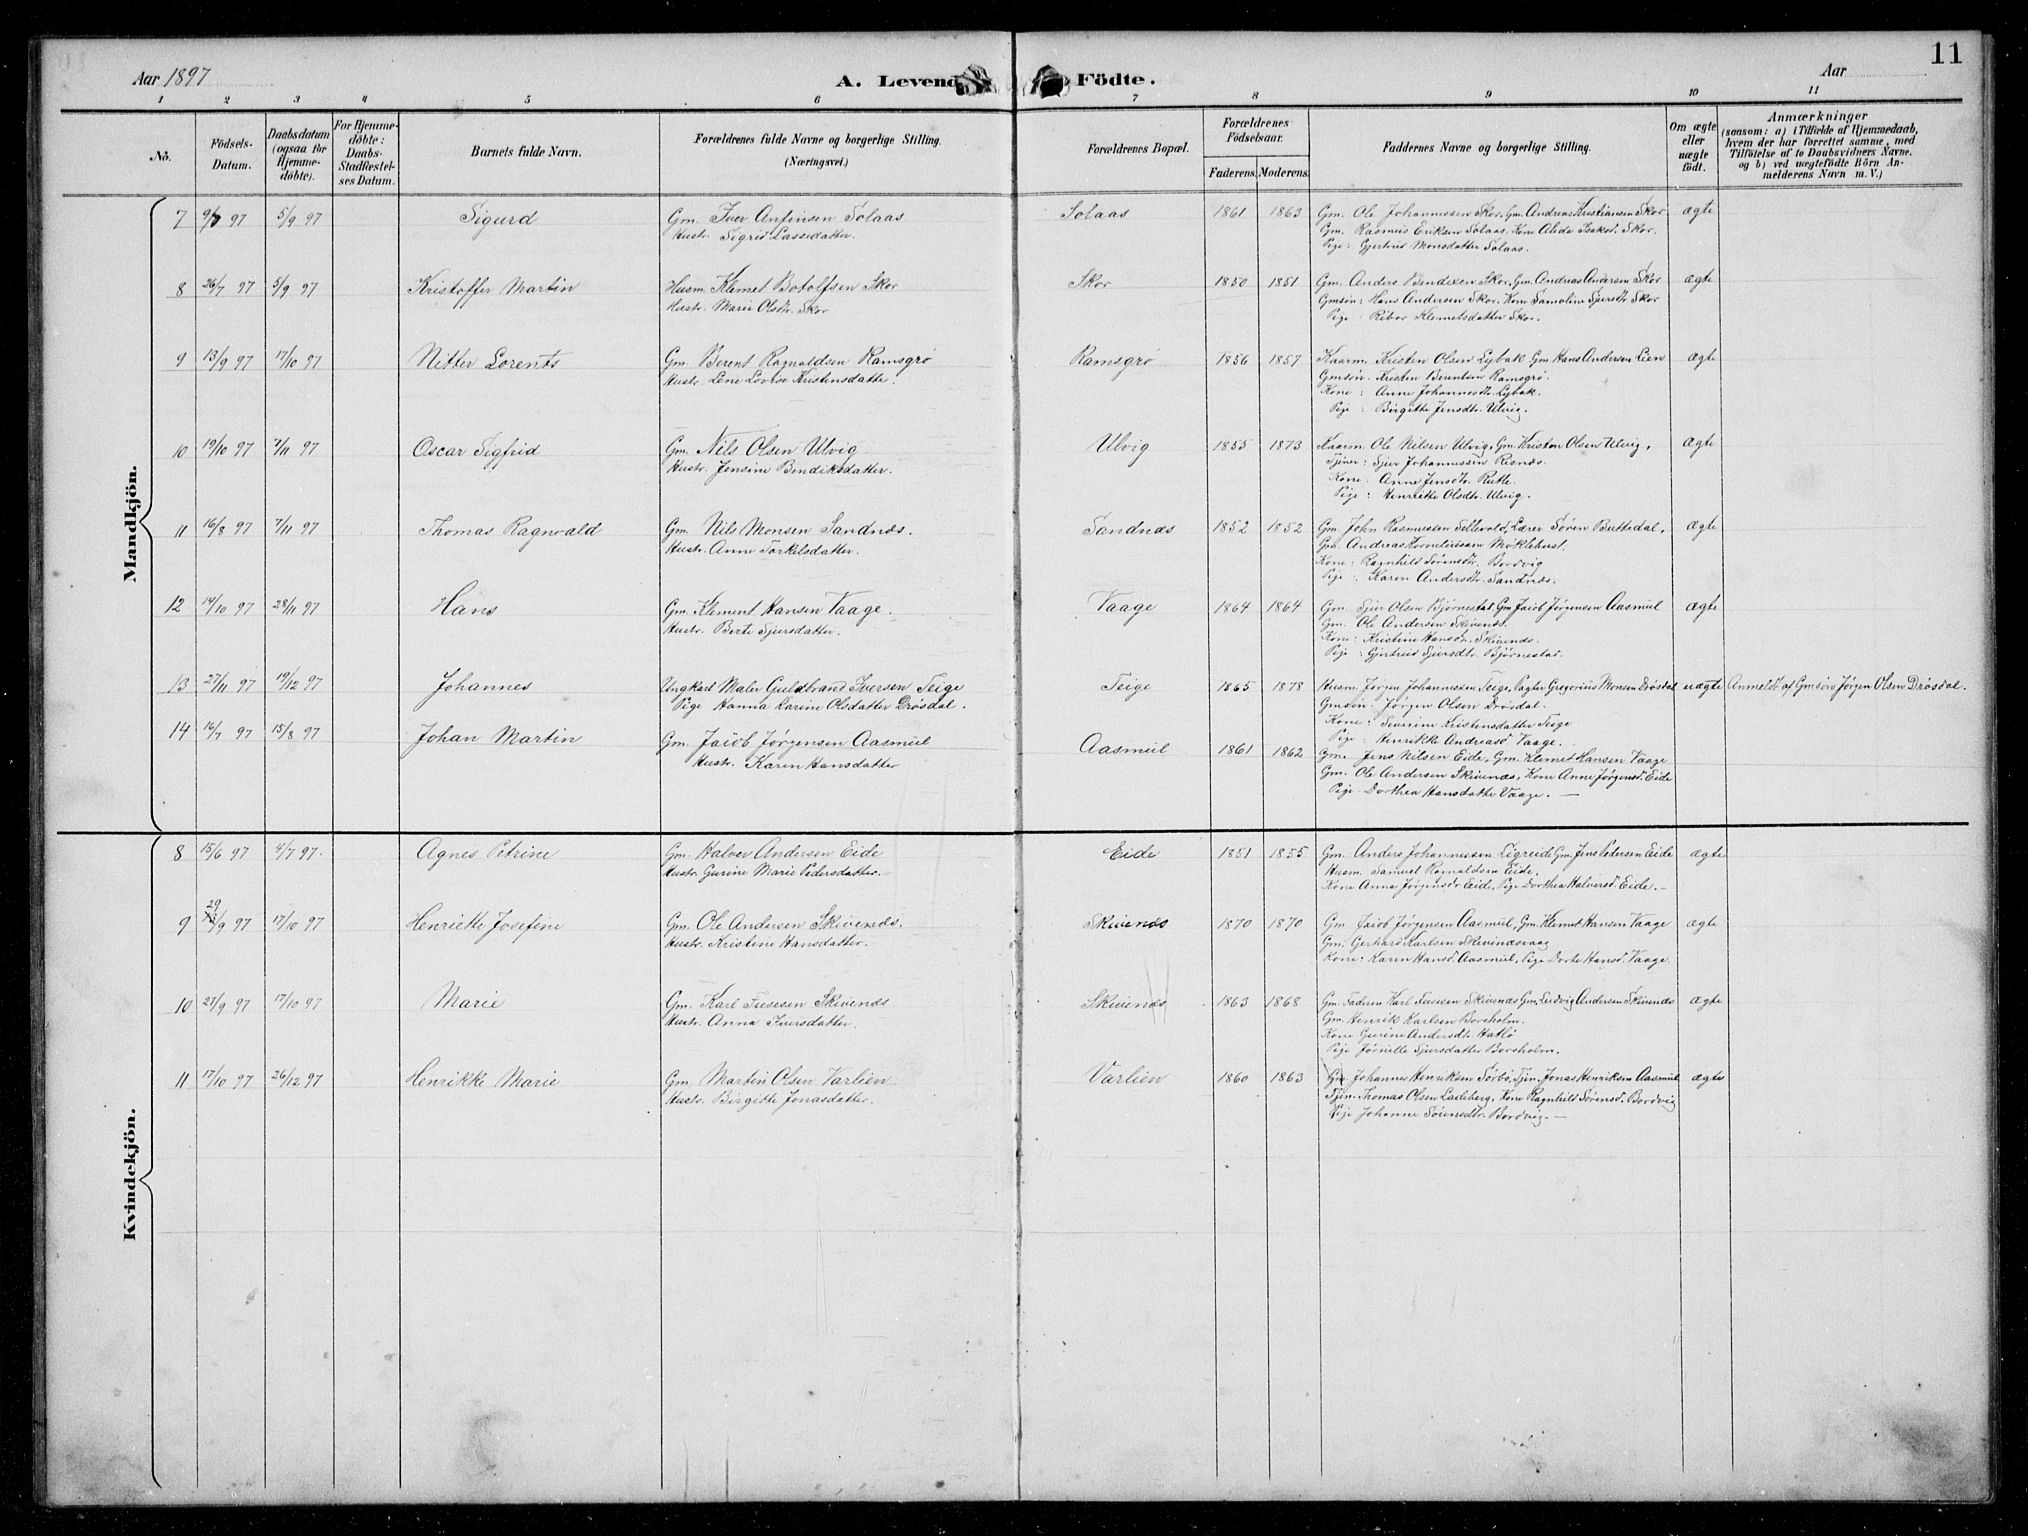 11
Aar 1897
A. Levende Födte.
Aar
1 2 3 4 5 6 7 8 9 10 11
No.
Födsels-Datum.
Daabsdatum (ogsaa for Hjemme-döbte).
For Hjemme-döbte: Daabs-Stadfæstel-ses Datum.
Barnets fulde Navn.
Forældrenes fulde Navne og borgerlige Stilling. (Næringsvei.)
Forældrenes Bopæl.
Forældrenes Födselsaar.
Faderens. Moderens.
Faddernes Navne og borgerlige Stilling.
Om ægte eller uægte födt.
Anmærkninger
(saasom: a) i Tilfælde af Hjemmedaab, hvem der har forrettet samme, med Tilföielse af to Daabsvidners Navne, og b) ved uægtefödte Börn An-melderens Navn m. V.)
Mandkjön.
7 9/7 97 5/9 97 Sigurd Gm. Iver Anfinsen Solaas Solaas 1861 1863 Gm. Ole Johannessen Skor, Gm. Andreas Kristiansen Skor ægte
Hustr. Sigrid Lassedatter. Gm. Rasmus Eriksen Solaas, Kone Alida Isaksd. Skor.
Pige: Gjertrud Monsdatter Solaas.
8 26/7 97 5/9 97 Kristoffer Martin Husm. Klemet Botolfsen Skor Skor 1850 1851 Gm. Anders Bendixen Skor, Gm. Andreas Andersen Skor ægte
Hustr. Marie Olsdtr. Skor Gmsøn: Hans Andersen Skor, Kone Samoline Sjursdtr Skor
Pige: Ribor Klemetsdatter Skor.
9 13/9 97 17/10 97 Nitter Lorents Gm. Berent Ragnaldsen Ramsgrø Ramsgrø 1856 1857 Kaarm. Kristen Olsen Lybak Gm Hans Andersen Lien ægte
Hustr. Lene Lovise Kristensdatter. Gmsøn: Kristen Berentsen Ramsgrø.
Kone: Anne Johannesdtr. Lybak.
Pige: Birgitte Jensdtr. Ulvig.
10 19/10 97 7/11 97 Oscar Sigfrid Gm. Nils Olsen Ulvig Ulvig 1855 1873 Kaarm. Ole Nilsen Ulvig, Gm. Kristen Olsen Ulvig, ægte
Hustr. Jensine Bendiksdatter. Tjener: Sjur Johannessen Risnes.
Kone: Anne Jensdtr. Rutle.
Pige: Henriette Olsdtr. Ulvig.
11 16/8 97 7/11 97 Thomas Ragnvald Gm. Nils Monsen Sandnæs. Sandnæs 1852 1852 Gm. John Rasmussen Sellevold, Lærer Søren Buttedal, ægte
Hustr. Anne Torkelsdatter. Gm. Andreas Korneliussen Møklebust.
Kone: Ragnhild Sørensdtr. Bordvig
Pige: Karen Andersdtr. Sandnæs.
12 14/10 97 28/11 97 Hans Gm. Klement Hansen Vaage. Vaage 1864 1864 Gm. Sjur Olsen Bjørnestad, Gm Jacob Jørgensen Aasmul ægte
Hustr. Berte Sjursdatter. Gm. Ole Andersen Skivenes.
Kone: Kristine Hansdr. Skivenes.
Pige: Gjertrud Sjursdtr. Bjørnestad.
13 27/11 97 19/12 97 Johannes Ungkarl Maler Guldbrand Iversen Teige Teige 1865 1878 Husm. Jørgen Johannessen Teige, Pagter Gregorius Monsen Drøsdal uægte Anmeldt af Gmsøn Jørgen Olsen Drøsdal.
Pige Hanna Karine Olsdatter Drøsdal. Gmsøn: Jørgen Olsen Drøsdal.
Kone: Severine Kristensdatter Teige
Pige: Henrikke Andreasd Vaage.
14 16/7 97 15/8 97 Johan Martin Gm. Jacob Jørgensen Aasmul Aasmul 1861 1862 Gm. Jens Nilsen Eide, Gm. Klemet Hansen Vaage
Hustr. Karen Hansdatter Gm. Ole Andersen Skivenes, Kone Anne Jørgensd. Eide
Pige Dorthea Hansdatte Vaage. —
Kvindekjön.
8 15/6 97 4/7 97. Agnes Petrine Gm. Halvor Andersen Eide Eide 1851 1855 Gm. Anders Johannessen Ligreide, Gm. Jens Pedersen Eide ægte
Hustr. Gurine Marie Pedersdatter. Husm. Samuel Ragnaldsen Eide,
Kone Anna Jørgensdr Eide, Pige Dorthea Halversd. Eide. —
9 29/9 97 17/10 97 Henriette Josefine Gm. Ole Andersen Skivenes. Skivenes 1870 1870 Gm. Jacob Jørgensen Aasmul, Gm. Klemet Hansen Vaage ægte
Hustr. Kristine Hansdatter. Gm. Gerhard Karlsen Skivenesvaag
Kone: Karen Hansd. Aasmul, Pige Dorte Hansd. Vaage.
10 27/9 97 17/10 97 Marie Gm. Karl Skivenes Skivenes 1863 1868 Gm. Karl Skivenes Gm. Ludvig Andersen Skivenes ægte
Hustr. Anna Iversdatter. Gm. Henrik Karlsen Borsholm.
Kone Gurine Andersdtr. Hatlø
Pige Sjursdatter Borsholm.
11 17/10 97 26/12 97 Henrikke Marie Gm. Martin Olsen Varlien Varlien 1860 1863 Gm. Johannes Henriksen Sørbø, Tjen. Jonas Henriksen Aasmul ægte
Hustr. Birgitte Jonasdatter. Tjen. Thomas Olsen Ladeberg, Kone Ragnhild Sørensd. Bordvig
Pige Johanne Sørensdtr. Bordvig. —